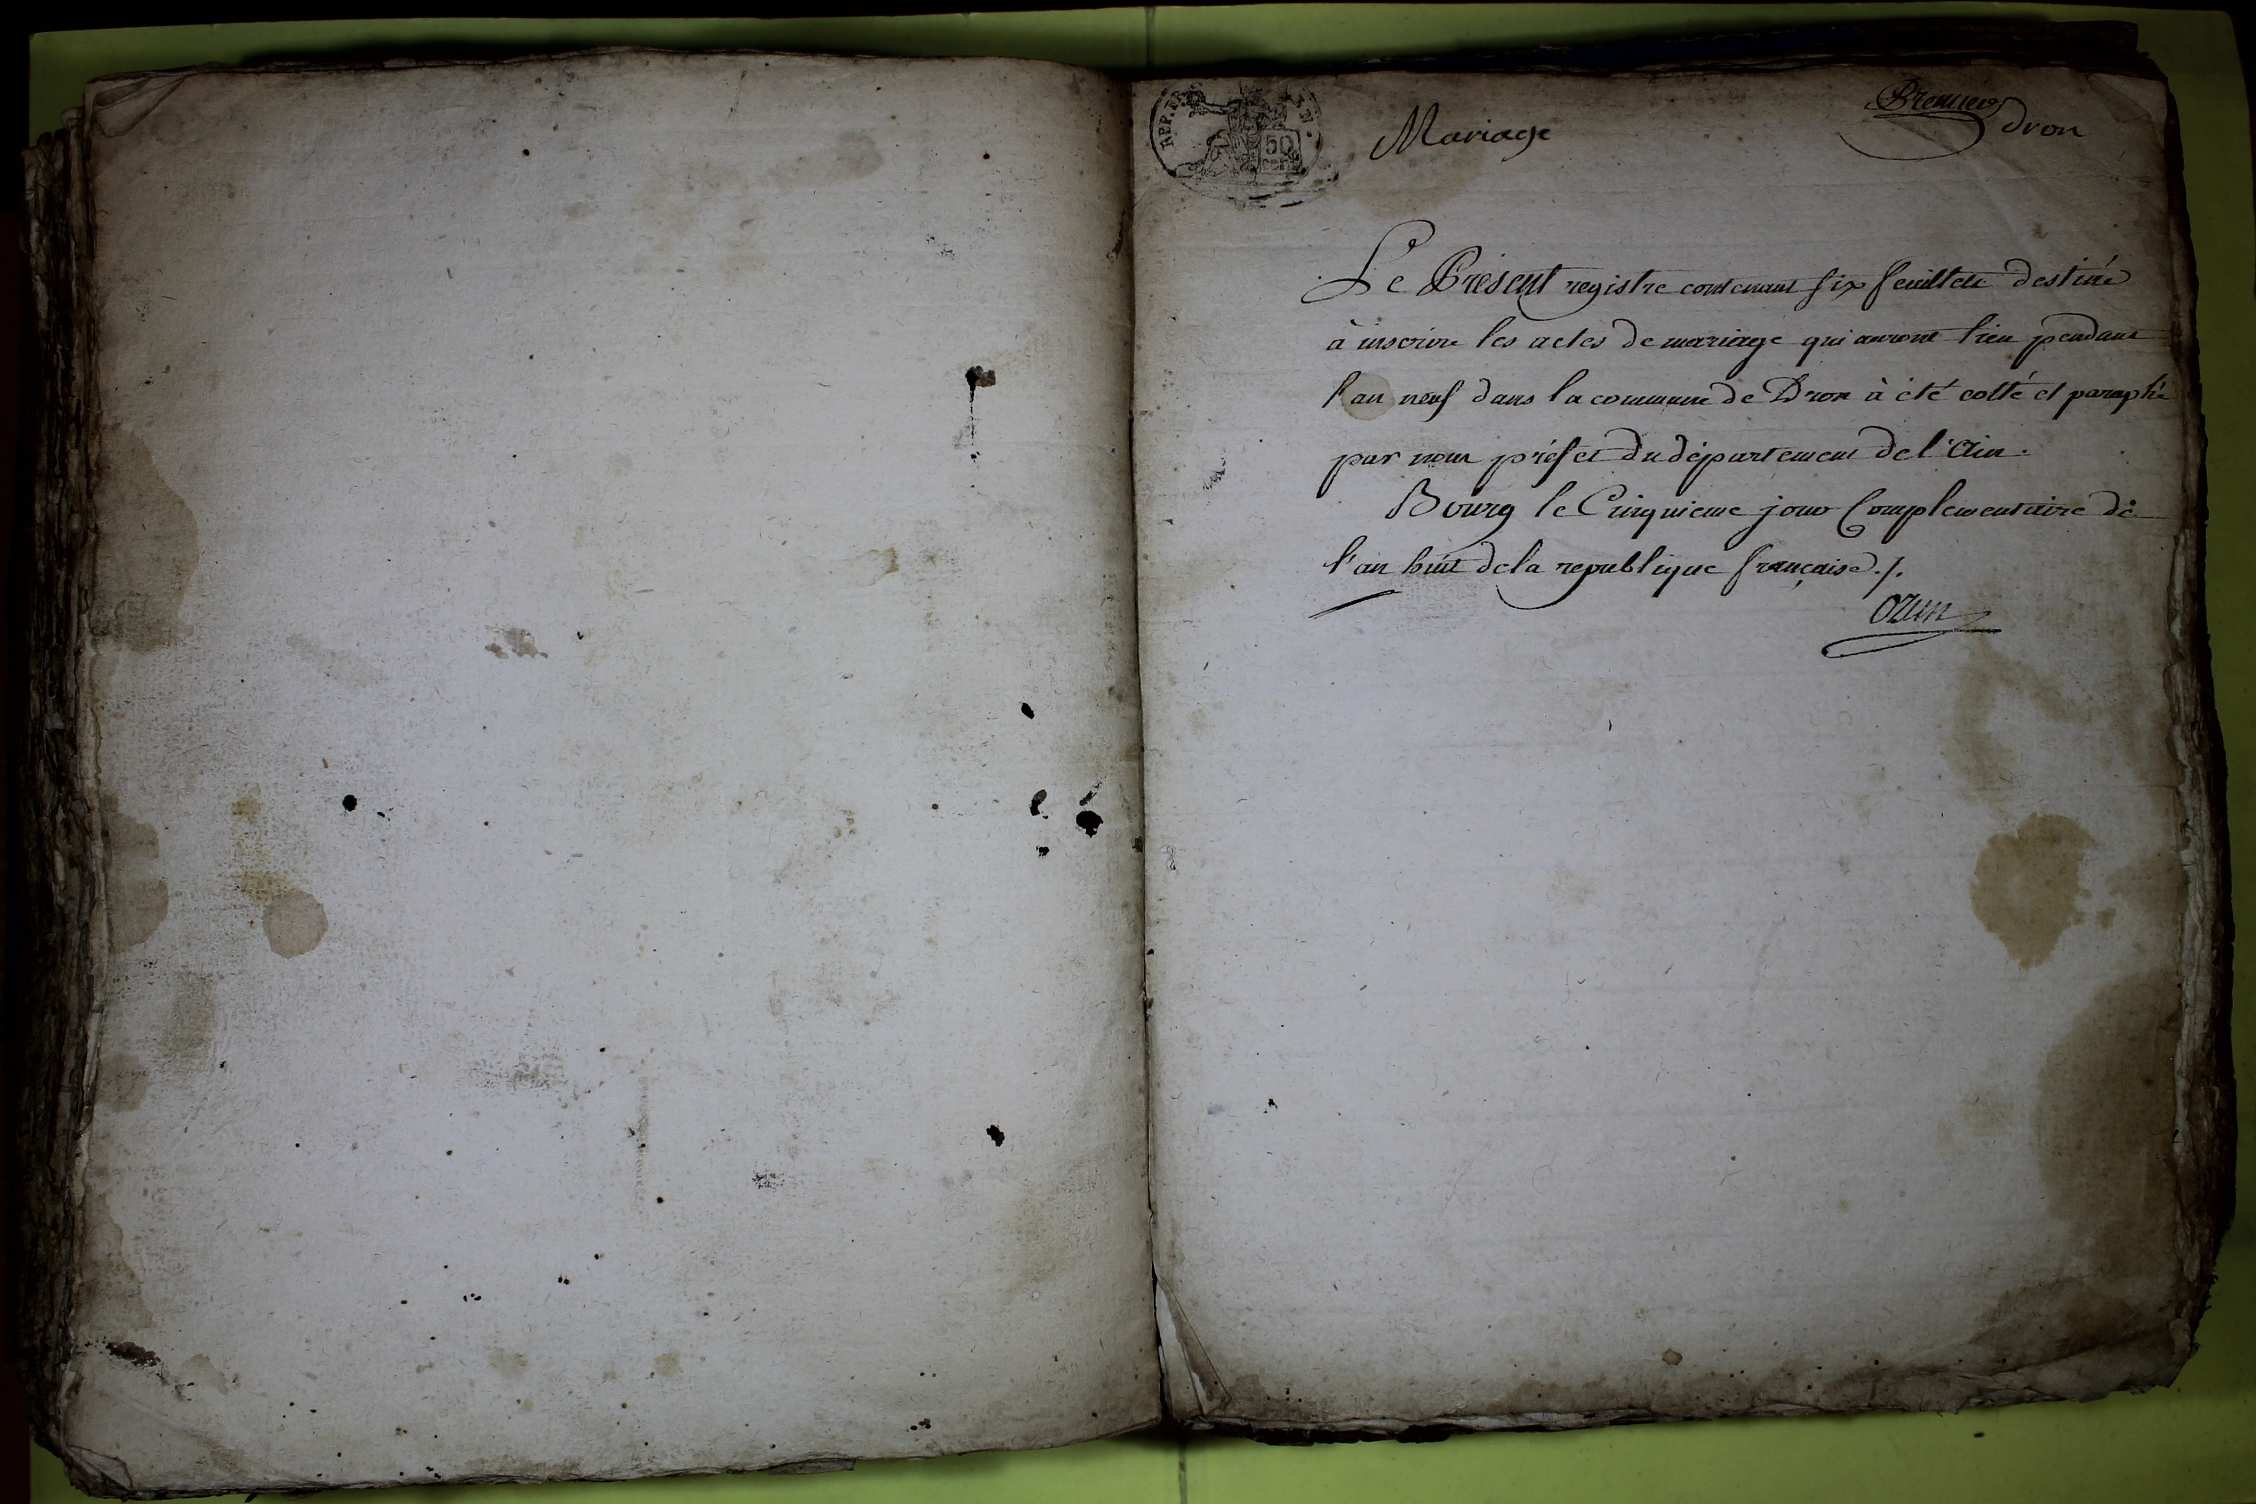 Mariage
Premier
Dron
50
Le Présent registre contenant six feuillets destiné
à inscrire les actes de mariage qui auront lieu pendant
l'an neuf dans la commune de Dron à été cotté et paraphé
par nous préfet du département de l'Ain.
Bourg le Cinquieme jour Complementaire de
l'an huit de la republique française ./.
Ozun